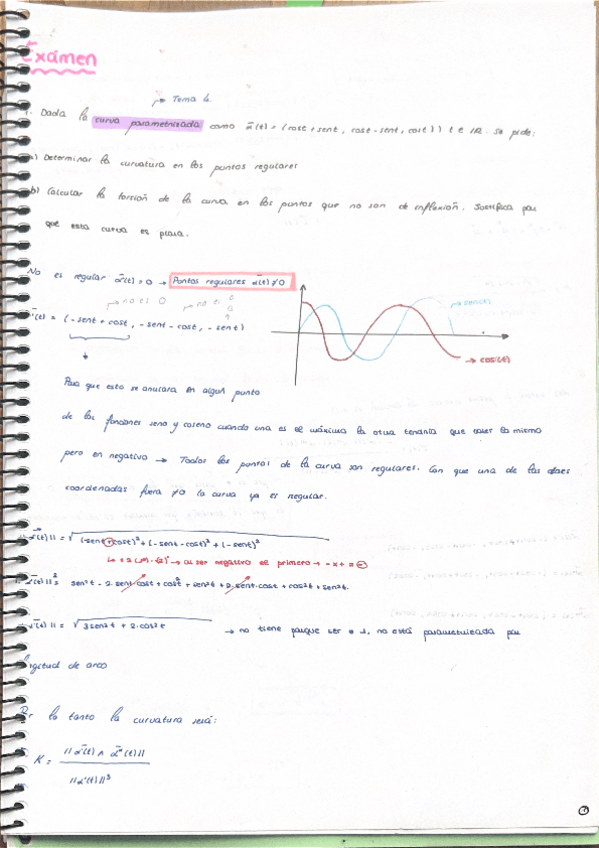 Exámen
→ Tema 4.
1. Dada la curva parametrizada como α(t) = (cost + sent, cost - sent, cost)) t ∈ IR. Se pide:
a) Determinar la curvatura en los puntos regulares
b) Calcular la torsión de la curva en los puntos que no son de inflexión. Justifica por
que esta curva es plana.
No es regular α'(t) = 0 → Puntos regulares α(t) ≠ 0
→ no ti 0 → no ti 0
α'(t) = (- sent + cost, - sent - cost, - sent)
→ sen(t)
→ cos(t)
Para que esto se anulara en algún punto
de las funciones seno y coseno cuando una es el máximo la otra tendría que valer lo mismo
pero en negativo → Todos los puntos de la curva son regulares. Con que una de las
coordenadas fuera ≠0 la curva ya es regular.
||α'(t)|| = √(-sent + cost)² + (- sent - cost)² + (- sent)²
al ser negativo el primero → - x + = -
||α'(t)||² = sen²t - 2·sent·cost + cos²t + sen²t + 2·sent·cost + cos²t + sen²t.
||α'(t)|| = √3sen²t + 2·cos²t → no tiene porque ser 1, no está parametrizada por
longitud de arco
Por lo tanto la curvatura será:
K = ||α'(t) ∧ α''(t)||
||α'(t)||³